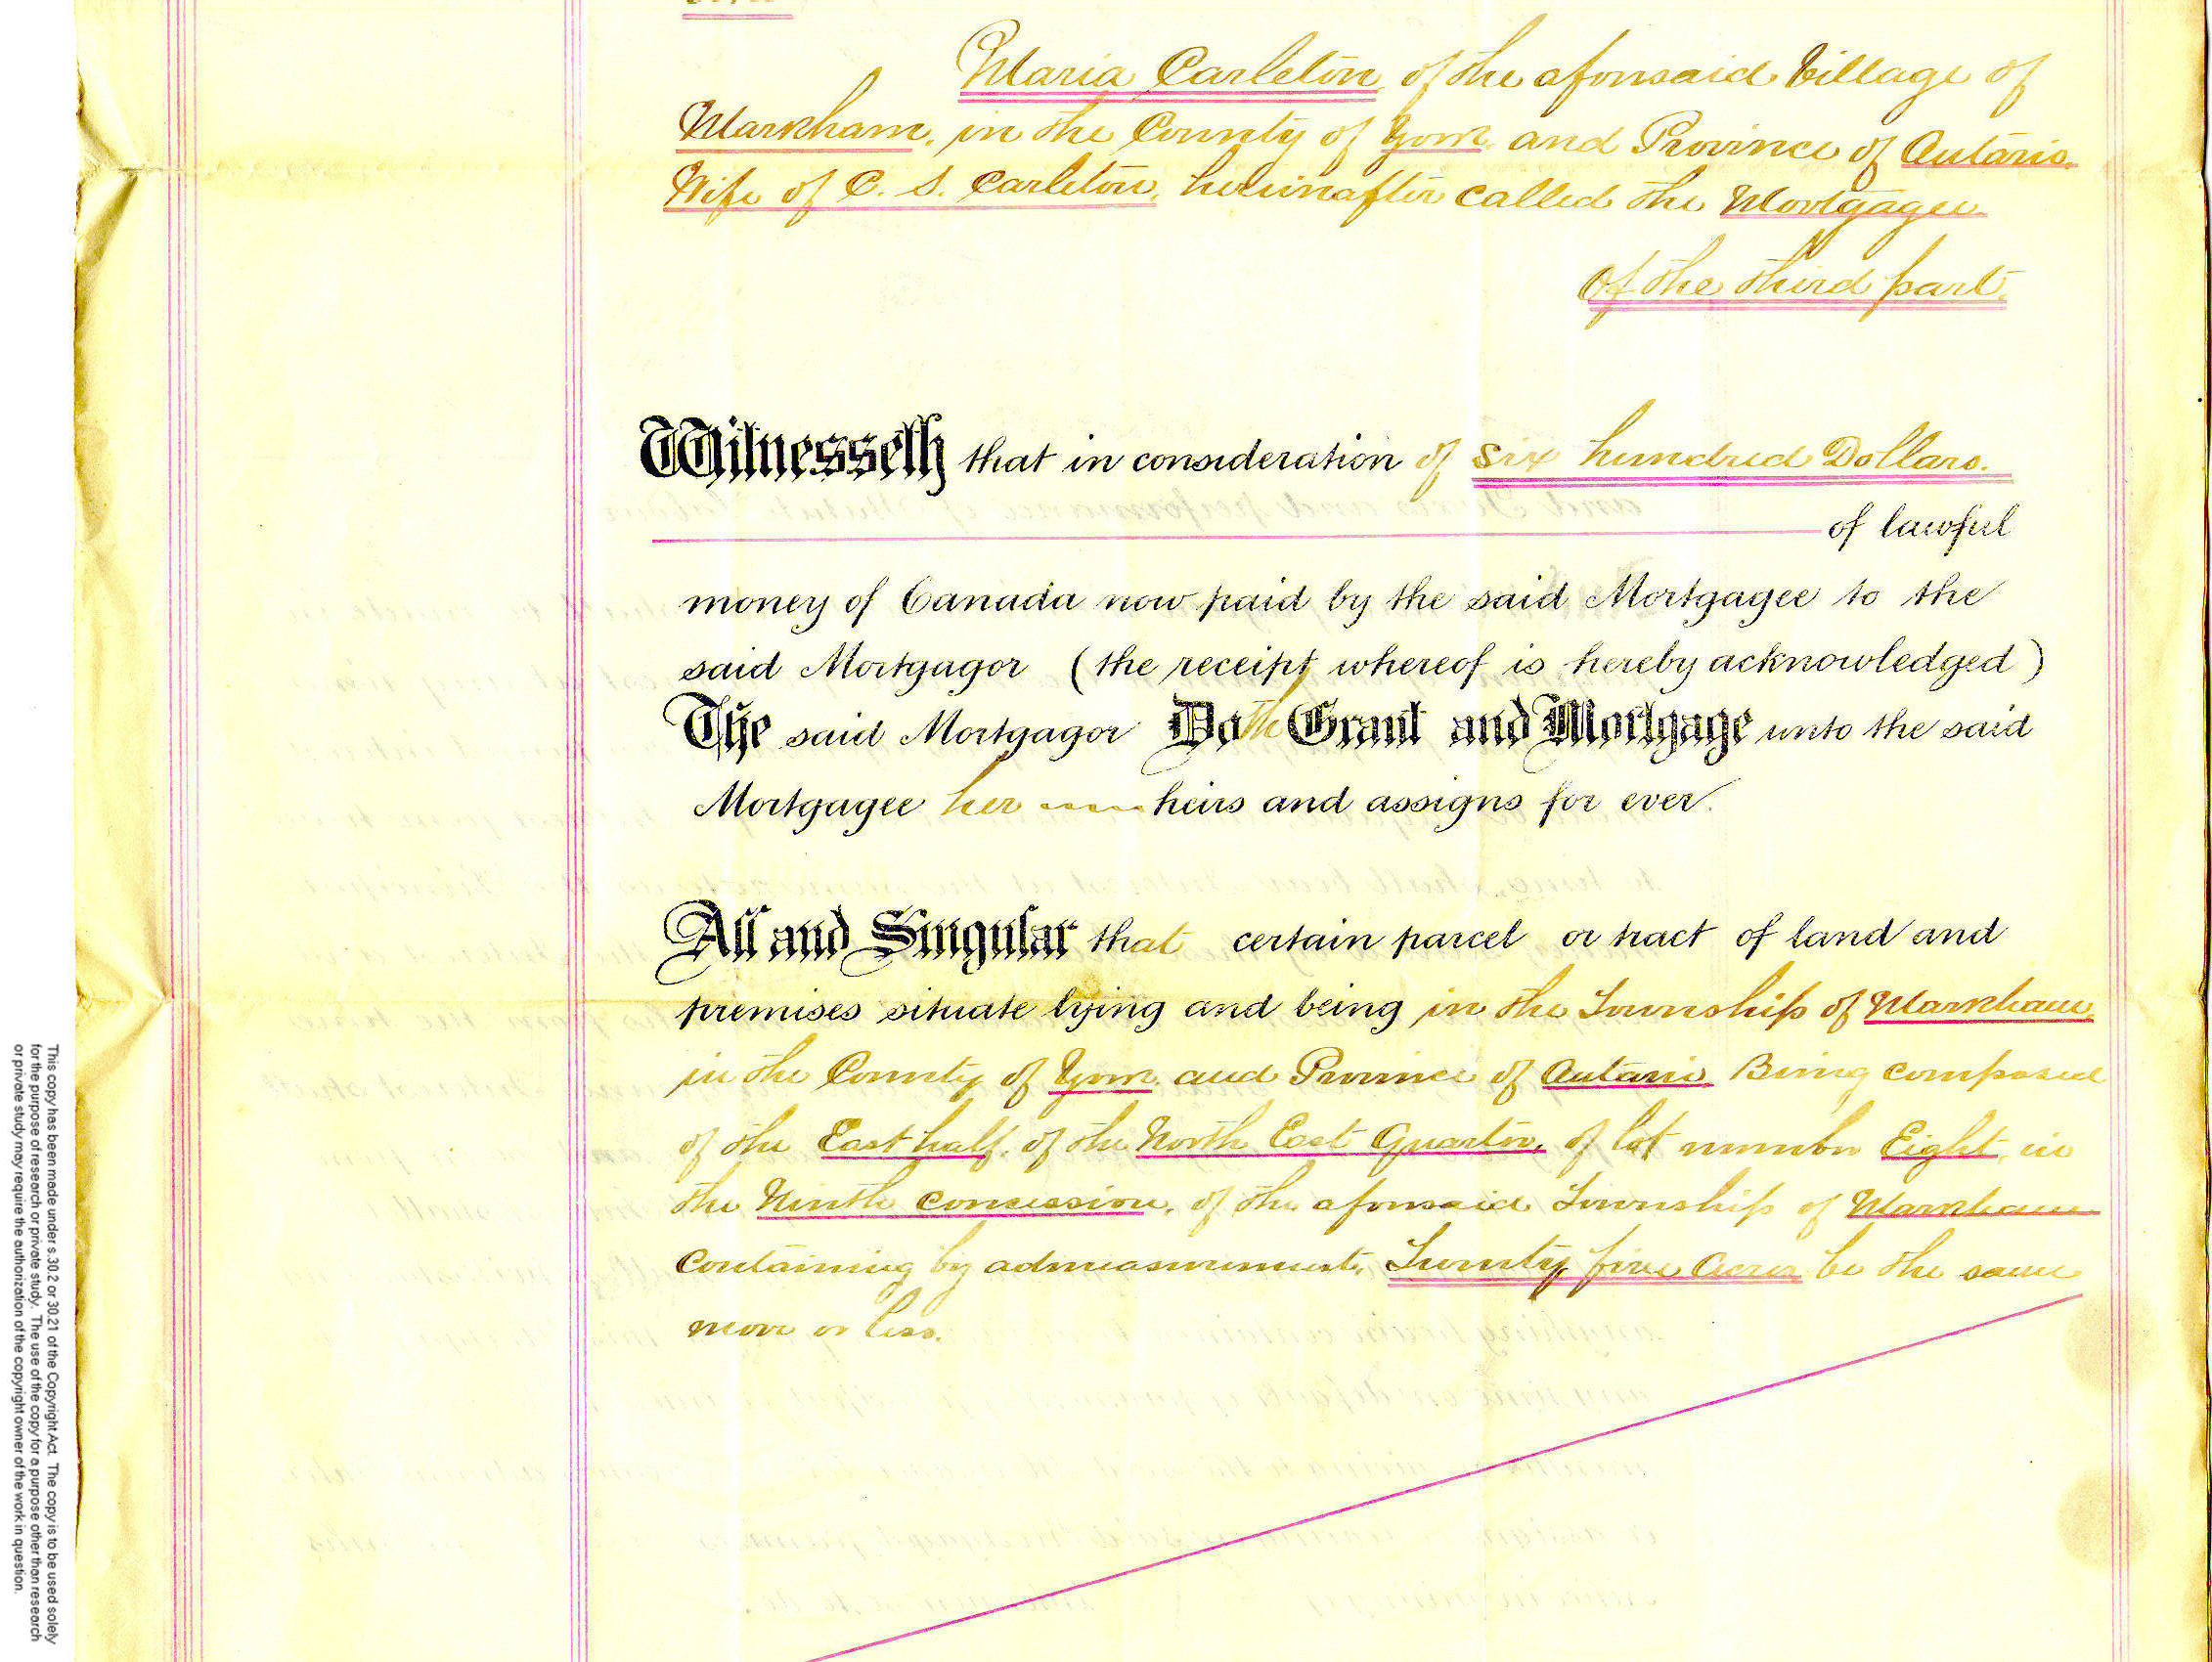 Maria Carleton of the aforesaid Village of
Markham, in the County of York and Province of Ontario.
Wife of C. S. Carleton, hereinafter called the Mortgagee
Of the third part.
Witnesseth that in consideration of six hundred Dollars.
of lawful
money of Canada now paid by the said Mortgagee to the
said Mortgagor (the receipt whereof is hereby acknowledged)
The said Mortgagor Doth Grant and Mortgage unto the said
Mortgagee her heirs and assigns for ever.
All and Singular that certain parcel or tract of land and
premises situate lying and being in the Township of Markham,
in the County of York and Province of Ontario Being composed
of the East half, of the North East Quarter, of lot number Eight, in
the Ninth concession, of the aforesaid Township of Markham
containing by admeasurement, Twenty five Acres be the same
more or less.
This copy has been made under s.30.2 or 30.21 of the Copyright Act. The copy is to be used solely
for the purpose of research or private study. The use of the copy for a purpose other than research
or private study may require the authorization of the copyright owner of the work in question.